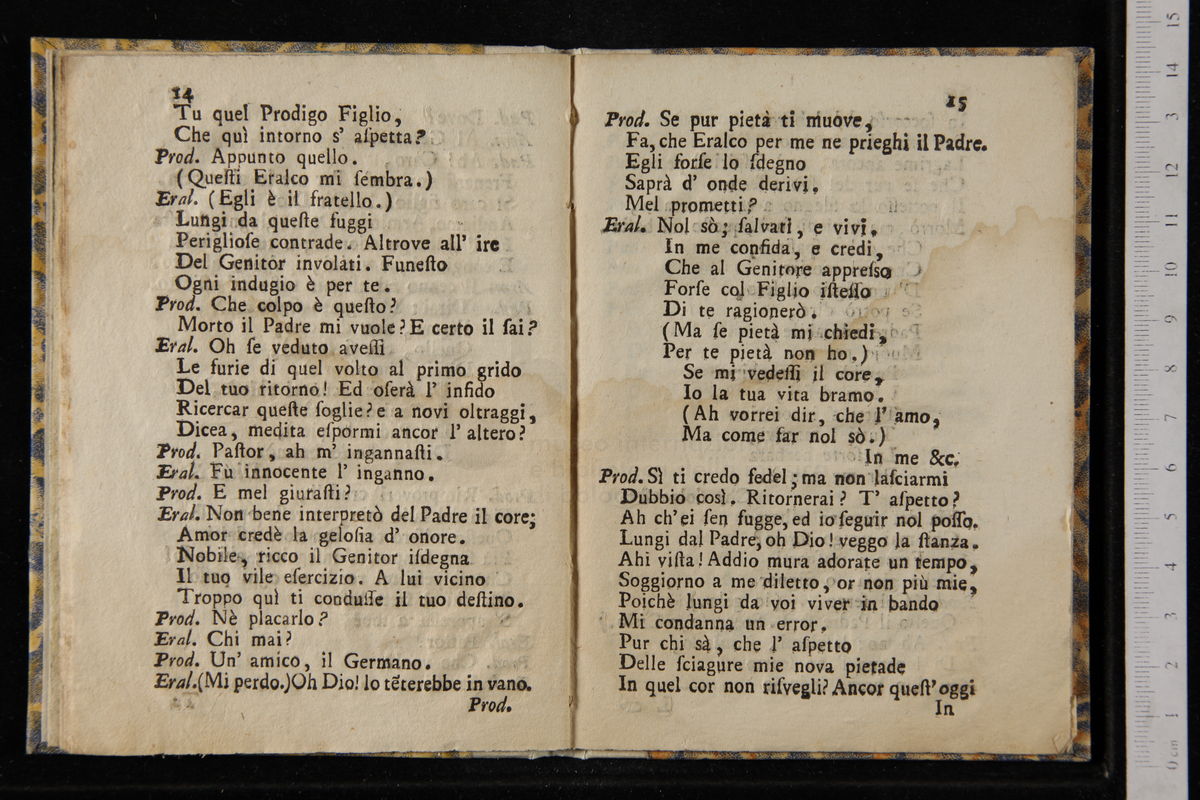 14
Tu quel Prodigo Figlio,
Che quì intorno s' aſpetta?
Prod. Appunto quello.
(Queſti Eralco mi ſembra.)
Eral. (Egli è il fratello.)
Lungi da queſte fuggi
Periglioſe contrade. Altrove all' ire
Del Genitor involati. Funeſto
Ogni indugio è per te.
Prod. Che colpo è queſto?
Morto il Padre mi vuole? E certo il ſai?
Eral. Oh ſe veduto aveſſi
Le furie di quel volto al primo grido
Del tuo ritorno! Ed oſerà l' infido
Ricercar queſte ſoglie? e a novi oltraggi,
Dicea, medita eſpormi ancor l' altero?
Prod. Paſtor, ah m' ingannaſti.
Eral. Fù innocente l' inganno.
Prod. E mel giuraſti?
Eral. Non bene interpretò del Padre il core;
Amor credè la geloſia d' onore.
Nobile, ricco il Genitor iſdegna
Il tuo vile eſercizio. A lui vicino
Troppo quì ti conduſſe il tuo deſtino.
Prod. Nè placarlo?
Eral. Chi mai?
Prod. Un' amico, il Germano.
Eral.(Mi perdo.)Oh Dio! lo tẽterebbe in vano.
Prod.
15
Prod. Se pur pietà ti muove,
Fa, che Eralco per me ne prieghi il Padre.
Egli forſe lo ſdegno
Saprà d' onde derivi.
Mel prometti?
Eral. Nol sò; ſalvati, e vivi.
In me confida, e credi,
Che al Genitore appreſſo
Forſe col Figlio iſteſſo
Di te ragionerò.
(Ma ſe pietà mi chiedi,
Per te pietà non ho.)
Se mi vedeſſi il core,
Io la tua vita bramo.
(Ah vorrei dir, che l' amo,
Ma come far nol sò.)
In me &c.
Prod. Sì ti credo fedel; ma non laſciarmi
Dubbio così. Ritornerai? T' aſpetto?
Ah ch'ei ſen fugge, ed io ſeguir nol poſſo.
Lungi dal Padre, oh Dio! veggo la ſtanza.
Ahi viſta! Addio mura adorate un tempo,
Soggiorno a me diletto, or non più mie,
Poichè lungi da voi viver in bando
Mi condanna un error.
Pur chi sà, che l' aſpetto
Delle ſciagure mie nova pietade
In quel cor non riſvegli? Ancor queſt' oggi
In